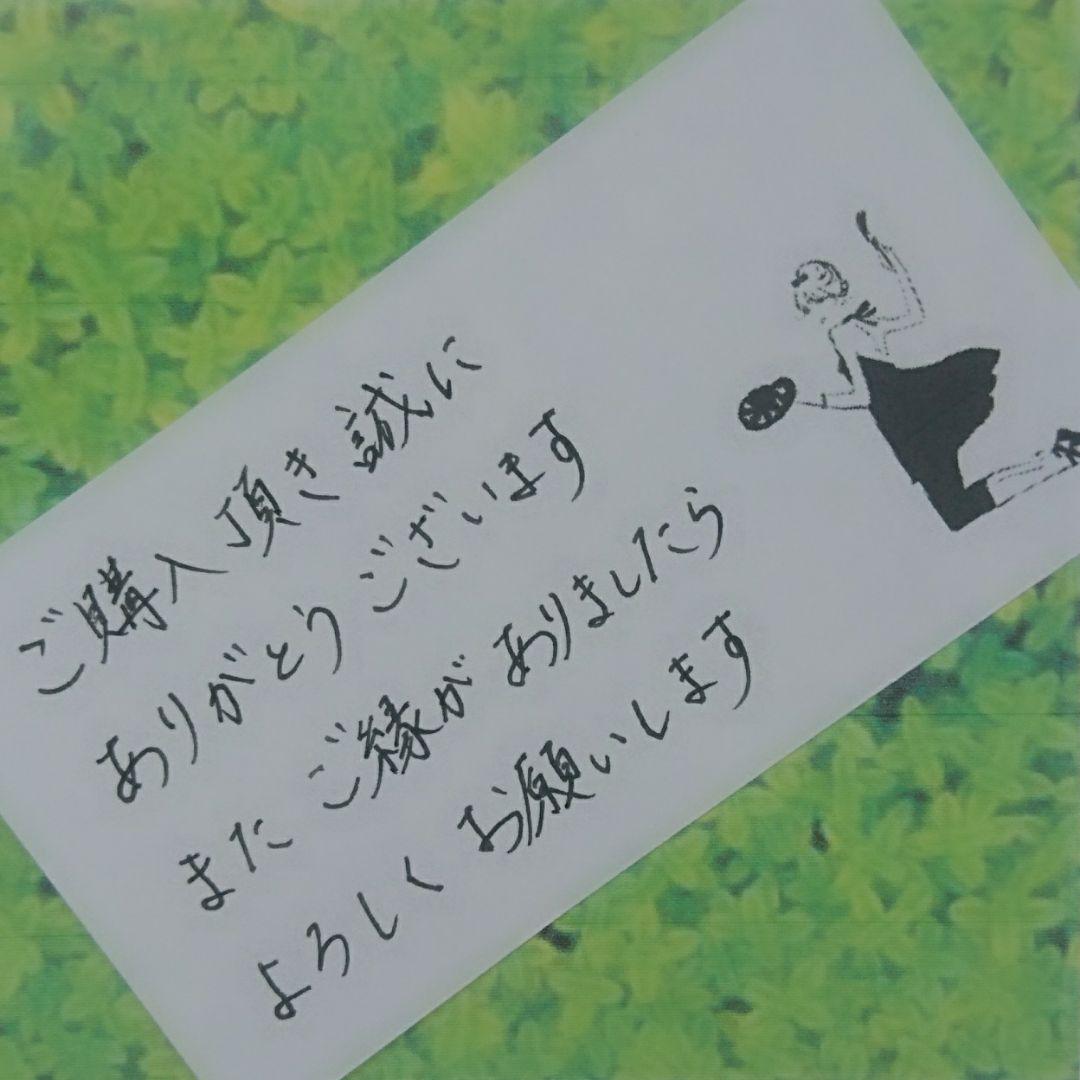 ご購入頂き誠に
ありがとうございます
またご縁がありましたら
よろしくお願いします